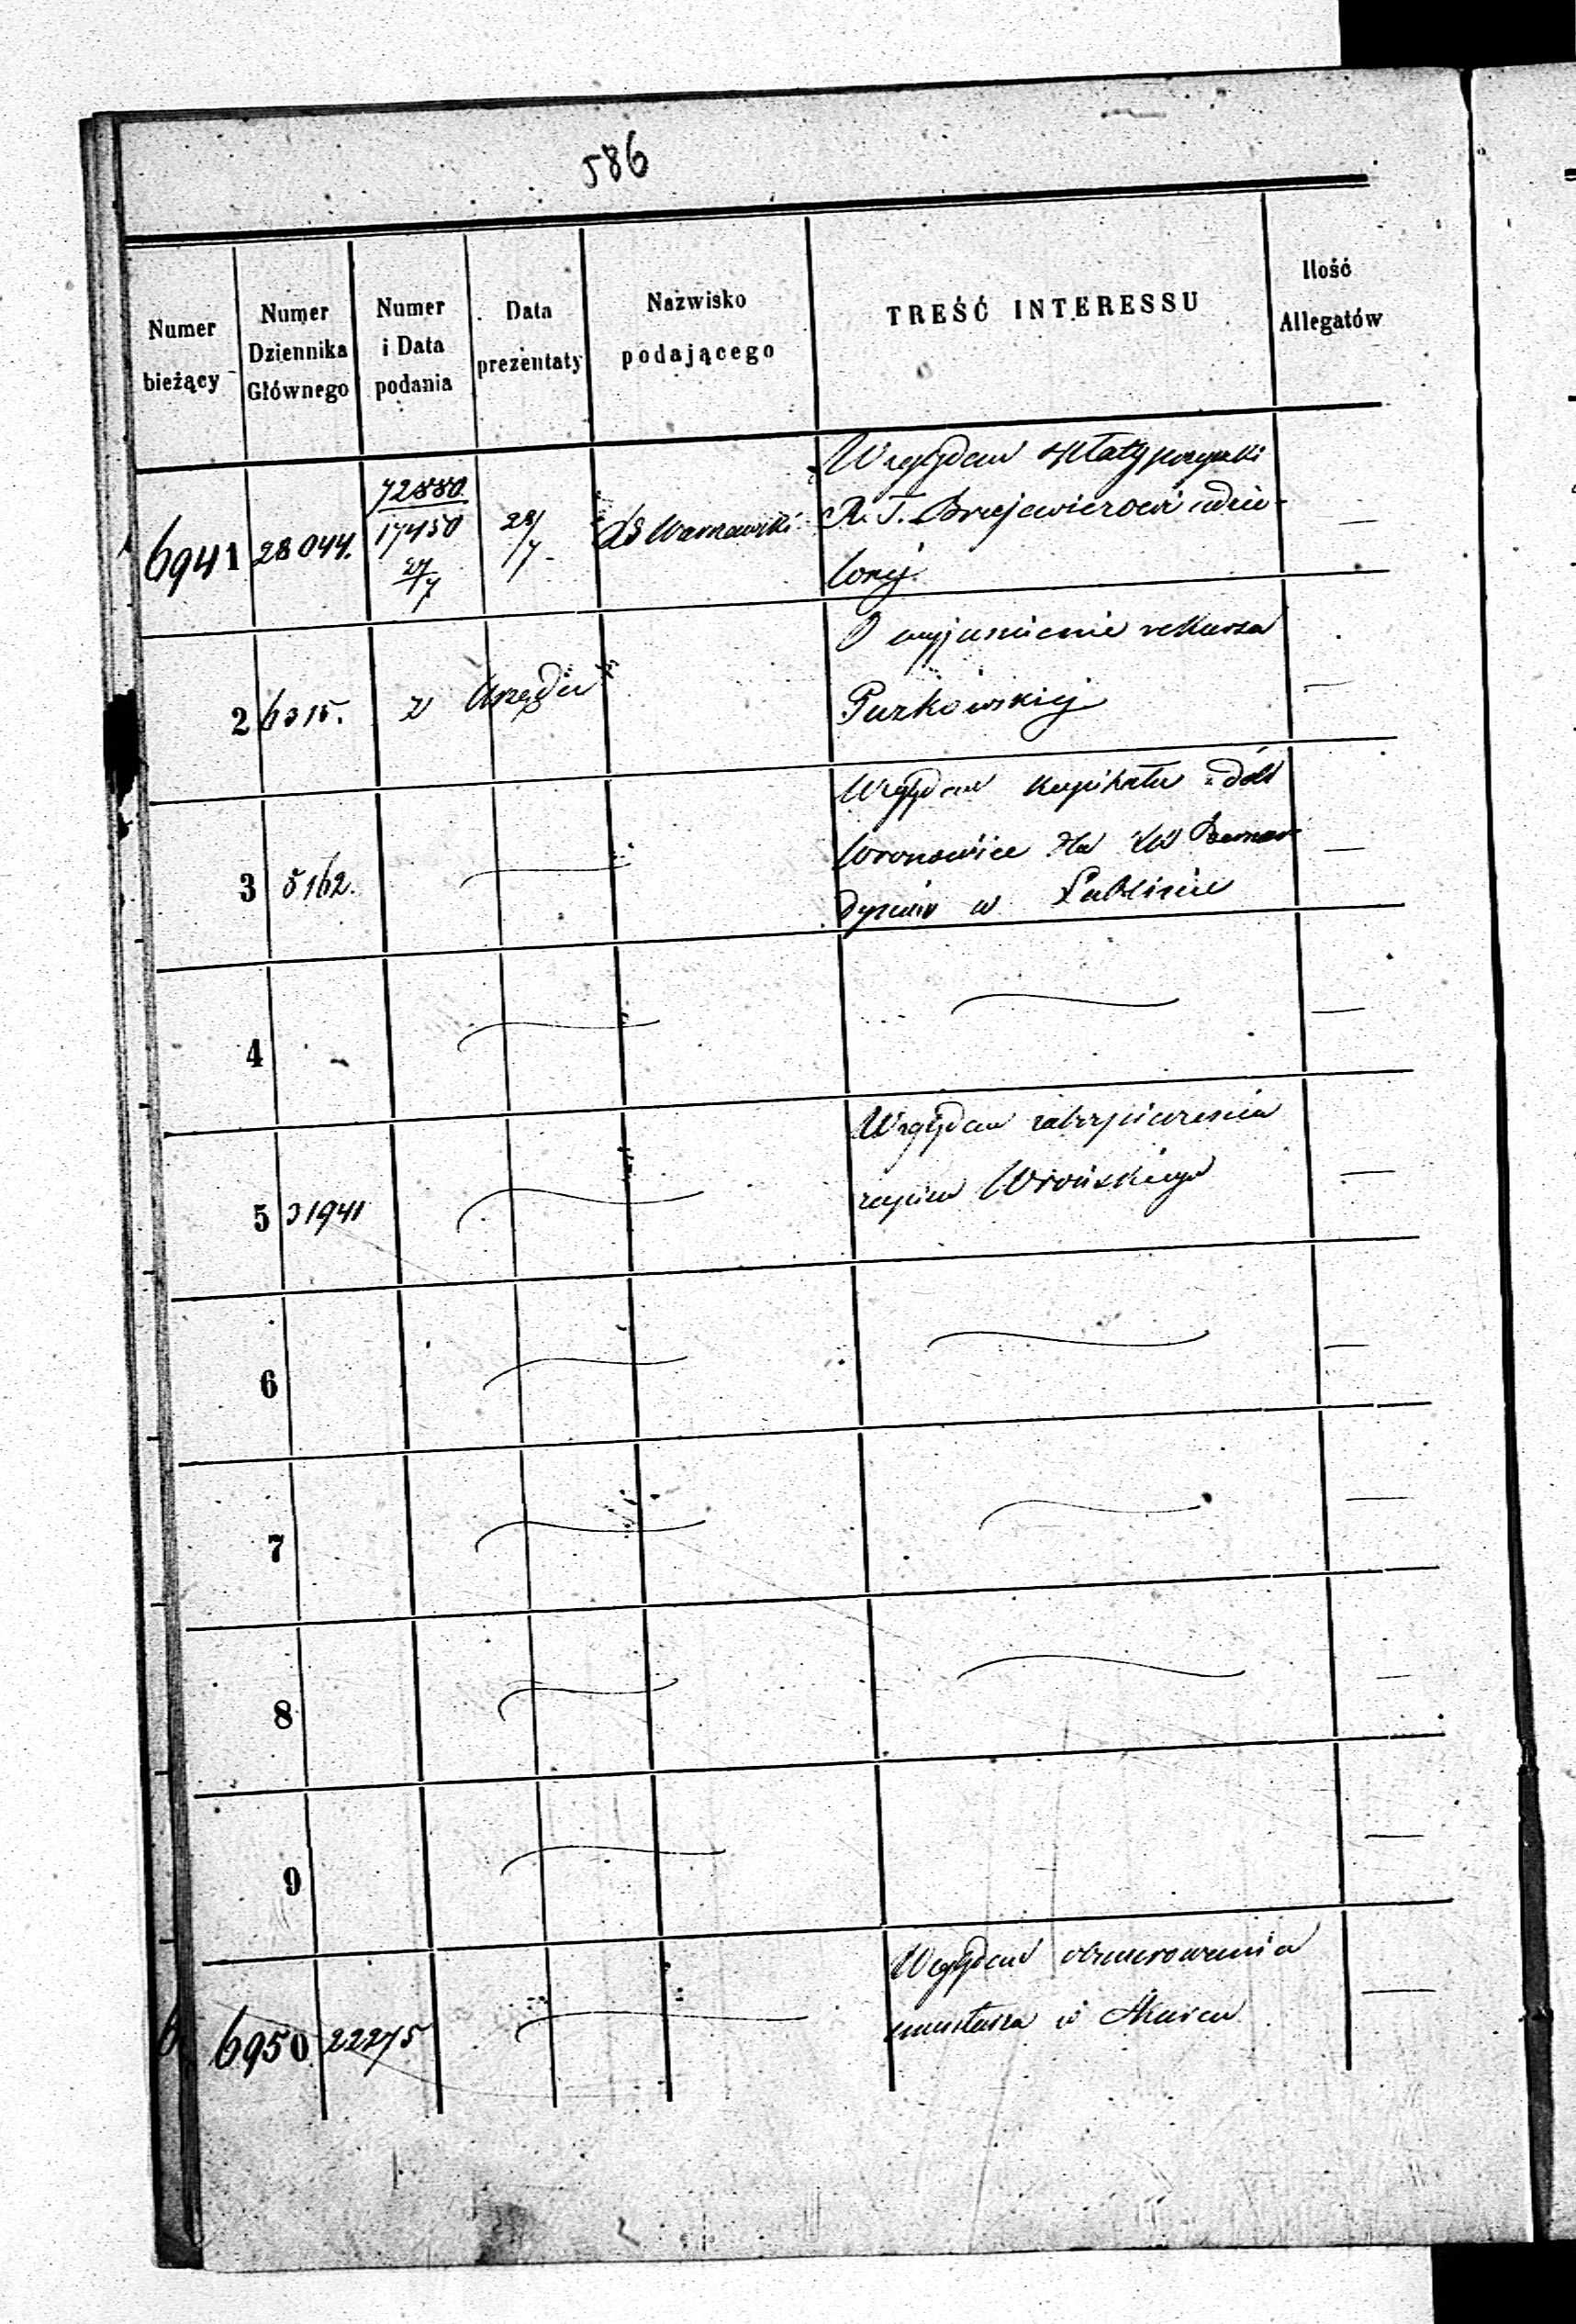 586
Numer bieżący
Numer Dziennika Głównego
Numer i Data podania
Data prezentaty
Nazwisko podającego
TREŚĆ INTERESSU
Ilość Allegatów
6941 28044. 72880 17450 27/7 28/7 Warnawski Względem spłaty pożyczki
R. T. udzie-
lonej.
2 6315. z Urzędu O wyjaśnienie rekursa
Purkowskiej
3 5162. Względem kapitału z dóbr
Wronowice dla XX Bernar-
dynów w Lublinie
4
5 31941 Względem zabezpieczenia
zapisu Wrońskiego
6
7
8
9
6950 22275 Względem obmurowania
cmentarza w